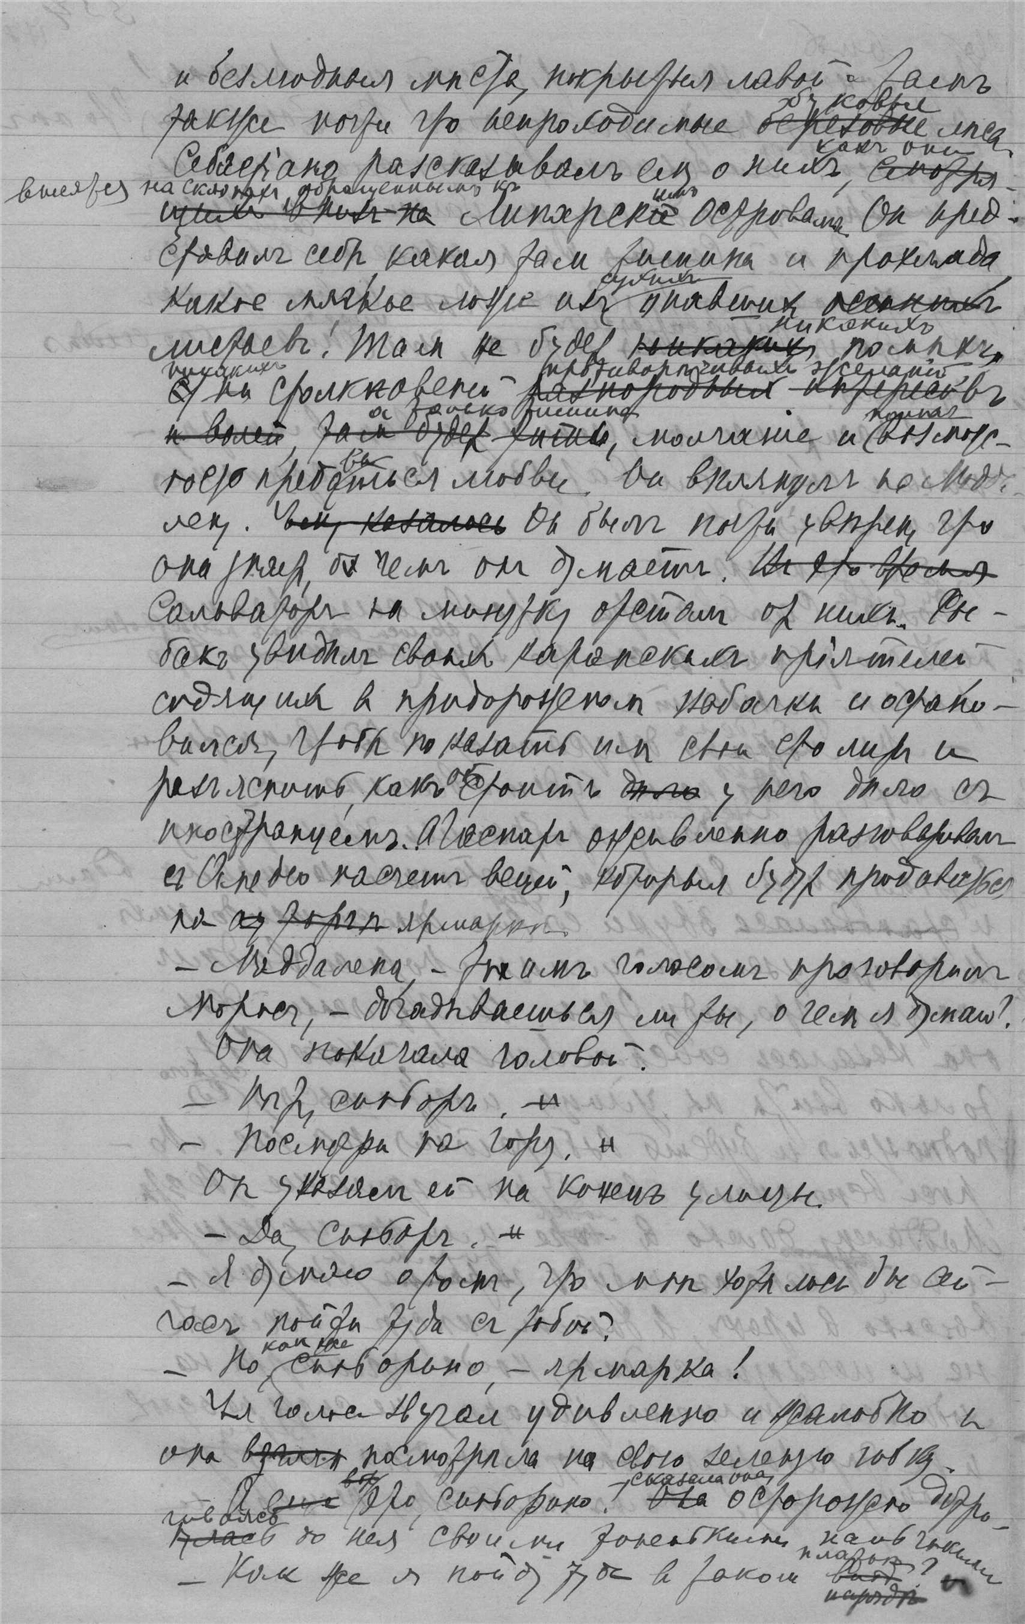 и безлюдныя мѣста, покрытыя лавой. Тамъ
также почти что непроходимые буковые лѣса.
Себастіано разсказывалъ ему о нихъ, какъ они
высятся на склонахъ, обращенныхъ къ Липарскимъ островамъ. Он пред-
ставилъ себѣ, какая там тишина и прохлада,
какое мягкое ложе изъ сухихъ упавших
листьевъ! Там не будет никакихъ помѣхъ,
никакихъ столкновеній противорѣчивыхъ желаній
а только тишина, молчаніе и полная возмож-
ность предаваться любви. Он взглянулъ на Мадда-
лену. Он былъ почти увѣрен, что
она знает, о чемъ онъ думаетъ.
Сальваторъ на минутку отсталъ от нихъ. Ры-
бакъ увидѣлъ своихъ каранскихъ пріятелей
сидящих в придорожном кабачкѣ и остано-
вился, чтобы показать им свои столир и
разъяснить, какъ обстоитъ у него дѣло съ
иностранцемъ. А Гаспаръ оживленно разговаривалъ
съ Амедео насчетъ вещей, которыя будут продаваться
на ярмаркѣ.
— Маддалена, — тихимъ голосомъ проговорилъ
Морисъ, — догадываешься ли ты, о чем я думаю?
Она покачала головой.
— Нѣт, синьоръ.
— Посмотри на гору.
Он указалъ ей на конецъ улицы.
— Да, синьоръ.
— Я думаю о том, что мнѣ хотѣлось бы сей-
часъ пойти туда съ тобой.
— Но, как же, синьорино, — ярмарка!
Ея голосъ звучал удивленно и жалобно и
она посмотрѣла на свою зеленую юбку.
— А вот это, синьорино! — сказала она осторожно дотро-
гиваясь до нея своими тоненькими пальчиками
— Как же я пойду туда в таком платьѣ?